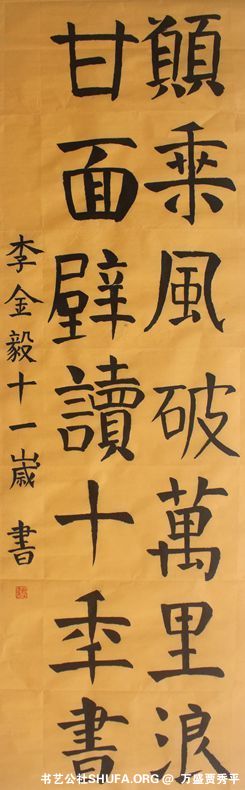 願乘風破萬里浪
甘面壁讀十年書
李金毅十一歲 書
书艺公社SHUFA.ORG @ 万盛贾秀平